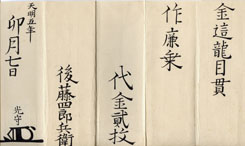 金這龍目貫
作廉乗
代金貳枚
後藤四郎兵衛
天明五年
卯月七日
光守